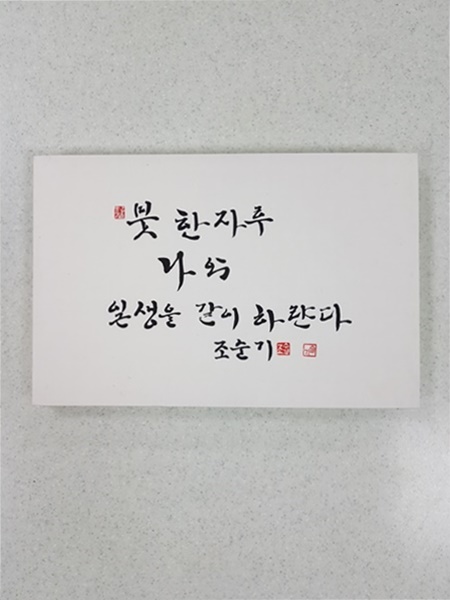 붓 한자루
나와
일생을 같이 하란다
조순기